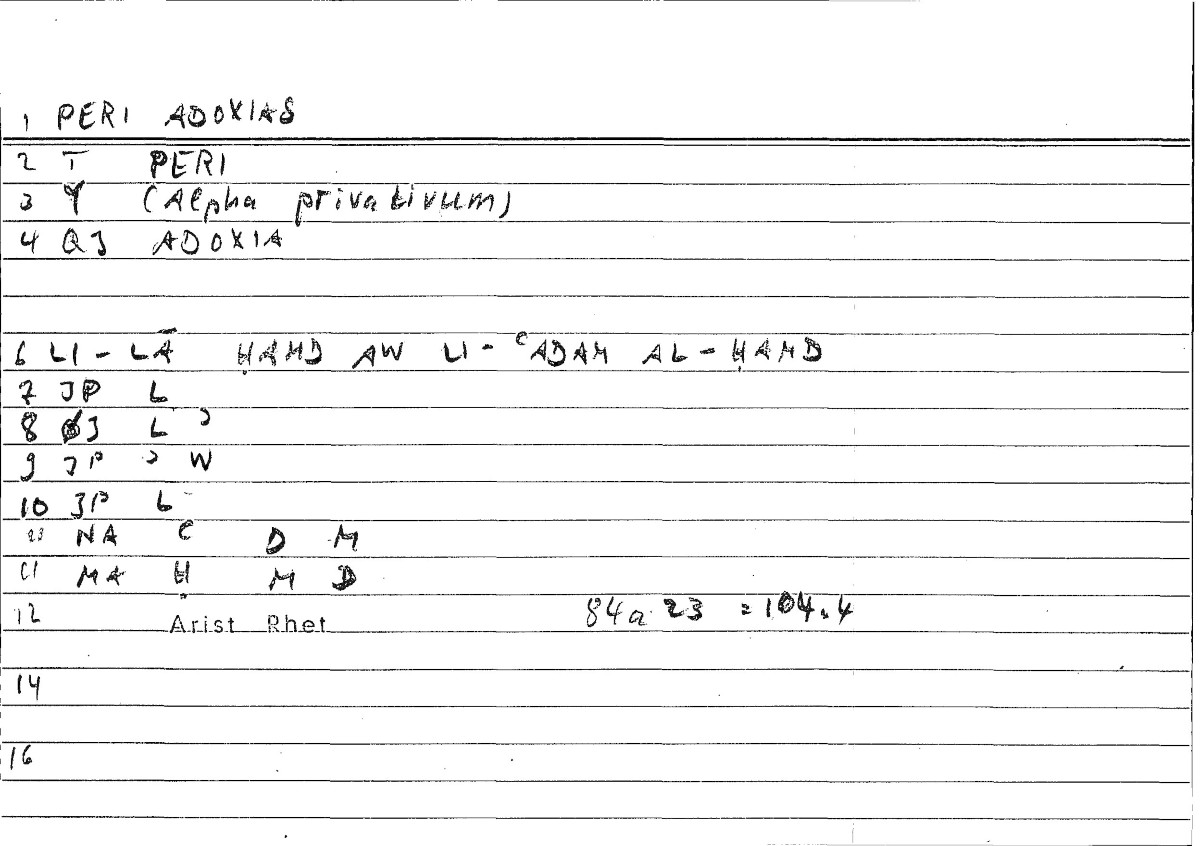 1 PERI ADOXIAS
2 T PERI
3 Y (Alpha privativum)
4 QJ ADOXIA
6 LI-LĀ ḤAMD AW LI-ʿADAM AL-ḤAMD
7 JP L
8 J L ʾ
9 JP ʾ W
10 JP L
NA ʿ D M
11 MA Ḥ M D
12 Arist Rhet 84a 23 = 104.4
14
16